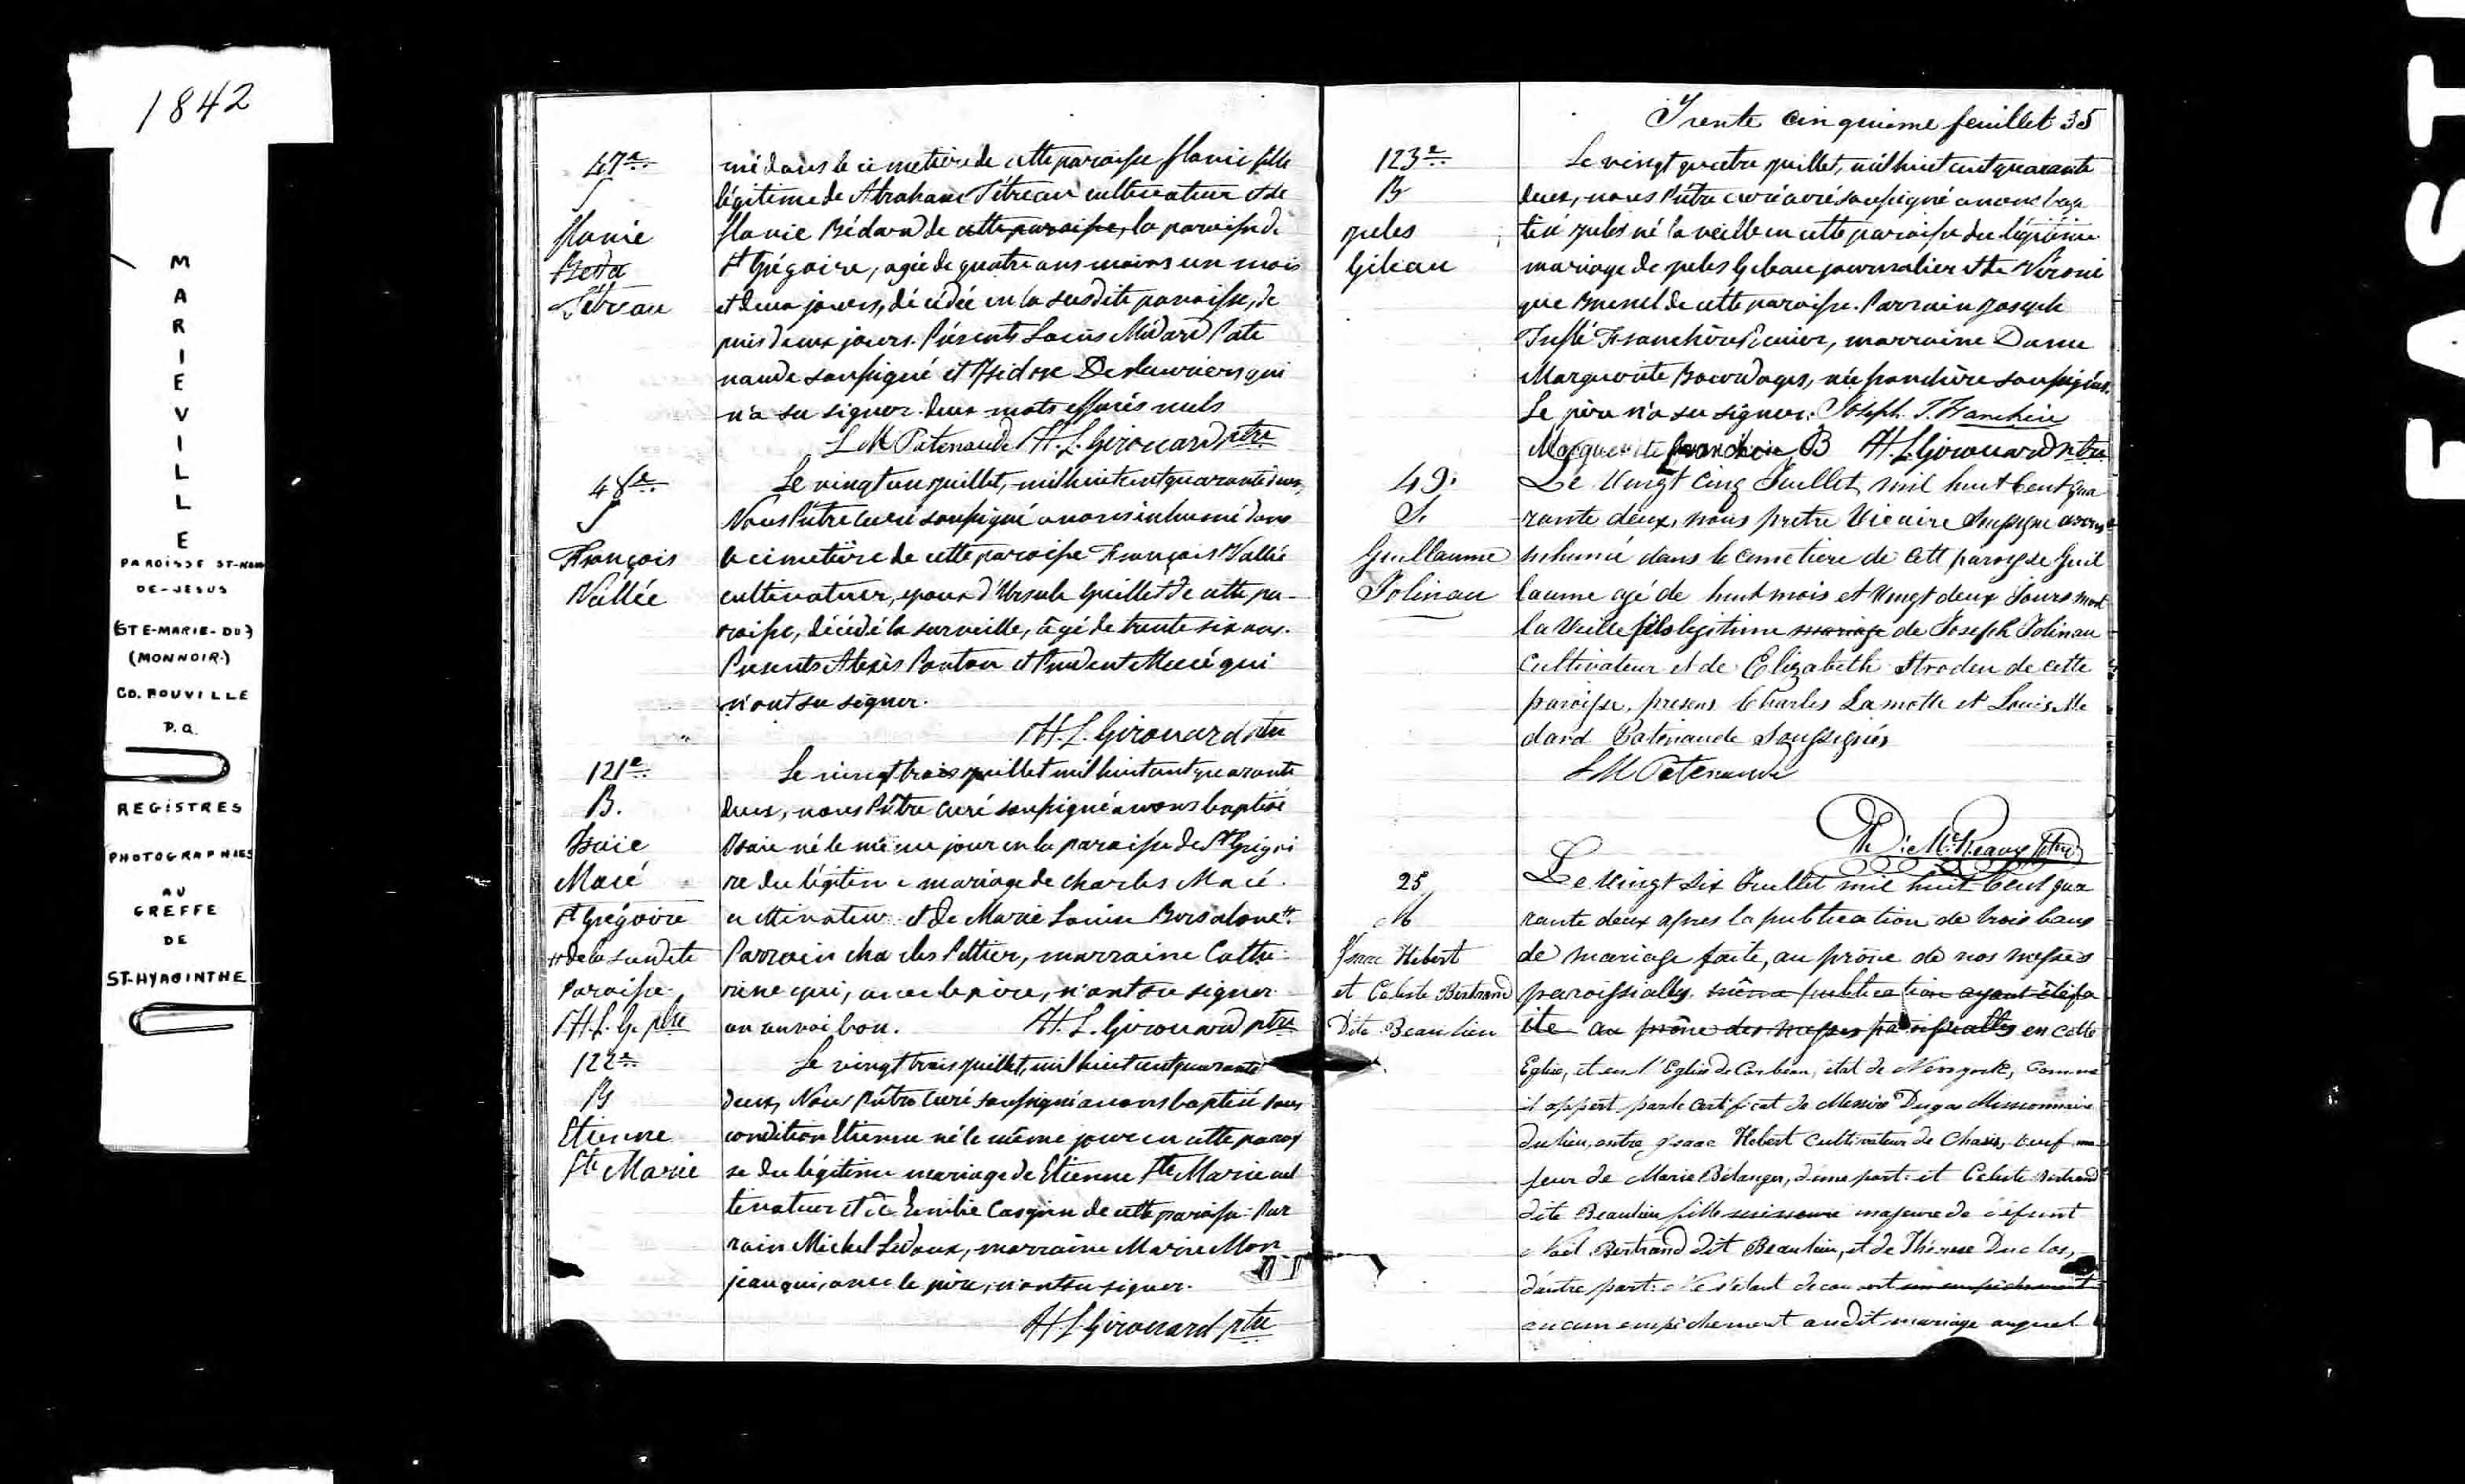 1842
MARIEVILLE
PAROISSE ST-NOM
DE-JESUS
(STE-MARIE-DU)
(MONNOIR.)
CO. ROUVILLE
P.Q.
REGISTRES
PHOTOGRAPHIES
AU
GREFFE
DE
ST-HYACINTHE
47e
S
flavie
Beda
Tétreau
mé dans le cimetière de cette paroisse flavie fille
légitime de Abraham Tétreau cultivateur et de
flavie Bédard de cette paroisse, la paroisse de
St Grégoire, agée de quatre ans moins un mois
et deux jours, décédée en la susdite paroisse, de
puis deux jours. Présents Louis Médard Pate
naude soussigné et Isidore Deslauriers qui
n'a su signer. deux mots effacés nuls
LM Patenaude H. L. Girouard ptre
48e
S
François
Vallée
Le vingt un juillet, mil huit cent quarante deux,
Nous Prêtre Curé soussigné avons inhumé dans
le cimetière de cette paroisse François Vallée
cultivateur, epoux d'Ursule Guillet de cette pa-
roisse, décédé la surveille, âgé de trente six ans.
Présents Alexis Ponton et Prudent Macé qui
n'ont su signer.
H. L. Girouard ptre
121e
B.
Isaïe
Macé
St Grégoire
# de la susdite
Paroisse
H. L. G. ptre
Le vingt trois juillet mil huit cent quarante
deux, nous Prêtre Curé soussigné avons baptisé
Isaïe né le même jour en la paroisse de St Grégoi
re du légitime mariage de Charles Macé
cultivateur et de Marie Louise #
Parrain charles Peltier, marraine Cathe
rine qui, avec le père, n'ont su signer
un renvoi bon. H. L. Girouard ptre
122e
B
Etienne
Ste Marie
Le vingt trois juillet, mil huit cent quarante
deux, Nous Prêtre Curé soussigné avons baptisé sous
condition Etienne né le même jour en cette parois
se du légitime mariage de Etienne Ste Marie cul
tivateur et de Emilie de cette paroisse. Par
rain Michel Ledoux, marraine Marie Mon
jeau qui, avec le père, n'ont su signer.
H. L. Girouard ptre
Trente cinquième feuillet 35
123e
B
jules
Gibeau
Le vingt quatre juillet, mil huit cent quarante
deux, nous Prêtre curé curé soussigné avons bap
tisé jules né la veille en cette paroisse du légitime
mariage de jules Gibeau journalier et de Véroni
que Brunel de cette paroisse. Parrain Joseph
Franchère Ecuier, marraine Dame
Marguerite Bourdages, née franchère soussignés.
Le père n'a su signer. Joseph T. Franchère
Marguerite franchère B H. L. Girouard ptre
49.
S.
Guillaume
Jolineau
Le Vingt Cinq Juillet mil huit Cent qua
rante deux, nous pretre Vicaire Soussigné avons
inhumé dans le cimetiere de cett paroisse Guil
laume agé de huit mois et Vingt deux Jours mort
la Veille fils legitime mariage de Joseph Jolinau
Cultivateur et de Elizabeth Stroden de cette
paroisse, presens Charles Lamotte et Louis Mé
dard Patenaude Soussignés
LM Patenaude
25
M
Isaac Hebert
et Celeste Bertrand
Dite Beaulieu
Le Vingt Six Juillet mil huit Cent qua
rante deux apres la publication de trois bans
de mariage faite, au prône de nos messes
paroissialles même publication ayant été fa
ite au prône des messes paroissialles en cette
Eglise, et en l'Eglise de Corbeau, état de Newyork, Comme
il appert par le certificat de Messire Dugas Missionnaire
du lieu, entre Isaac Hebert Cultivateur de Chasis, veuf ma
jeur de Marie Bélanger, d'une part: et Celeste Bertrand
dite Beaulieu fille mineure majeure de défunt
Noël Bertrand dit Beaulieu, et de Thérese Duclos,
d'autre part: Ne s'étant découvert un empêchement
aucun empêchement audit mariage auquel
FAST